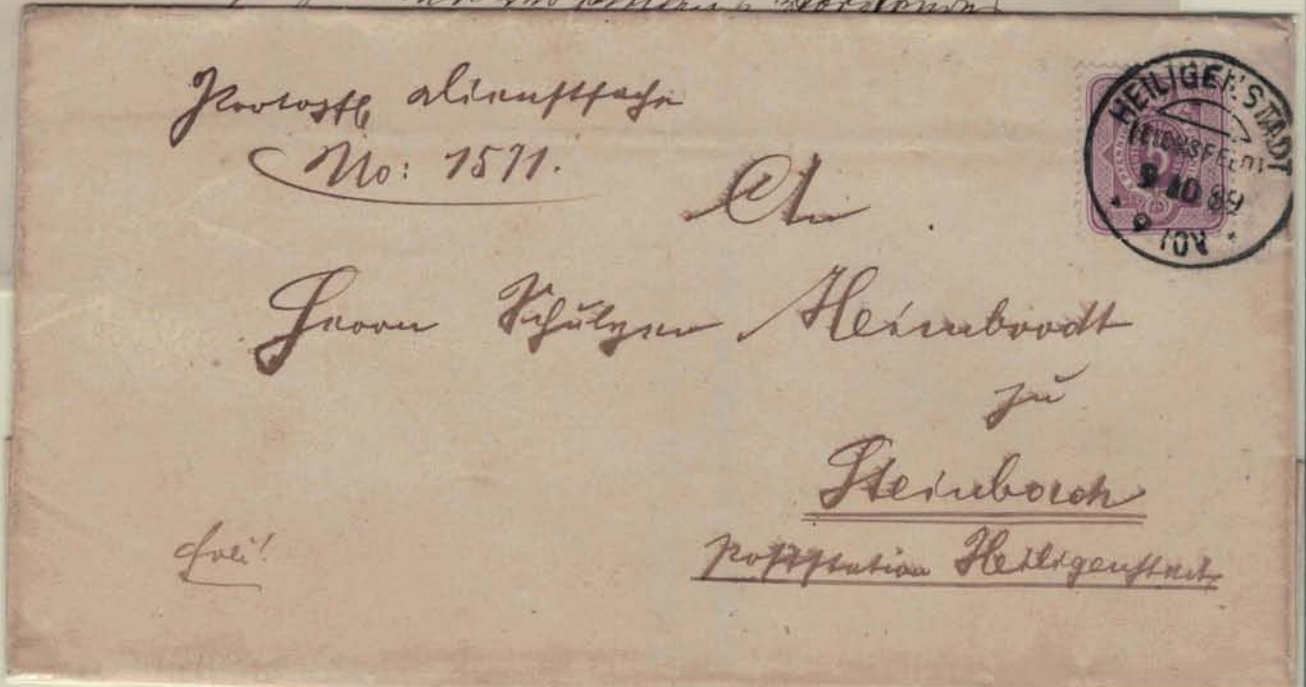 Portopfl. Dienstsache
No: 1571.
An
Herrn Schulzen Heimbrodt
zu
Steinbach
Poststation Heiligenstadt
frei!
HEILIGENSTADT
(EICHSFELD)
89
9 10 V
5